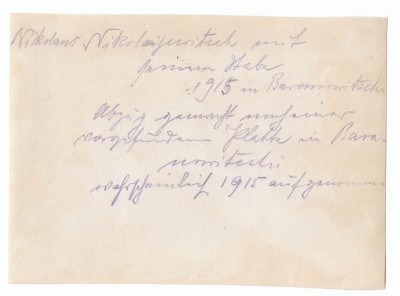 Nikolaus Nikolajewitsch mit
seinem Stabe
1915 in Baranowitschi
Abzug gemacht nach einer
vorgefundenen Platte in Bara-
nowitschi
wahrscheinlich 1915 aufgenommen